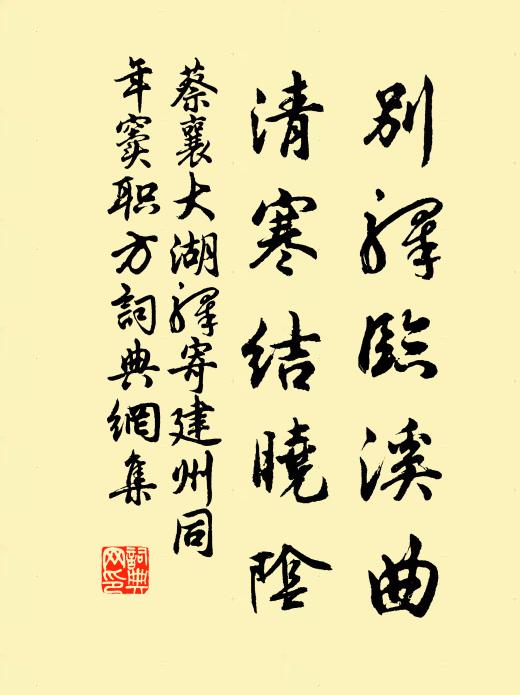 別驛臨溪曲
清寒結曉陰
蔡襄大湖驛寄建州同
年竇职方詞典網集
詞典网印